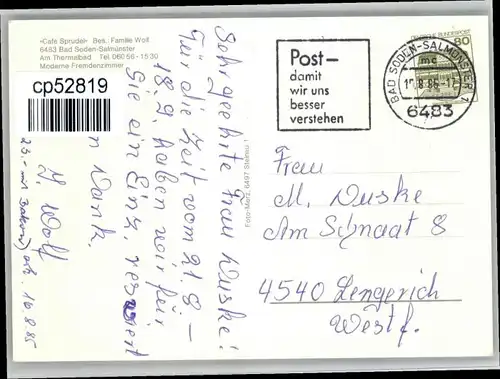 «Café Sprudel» Bes.: Familie Wolf
6483 Bad Soden-Salmünster
Am Thermalbad Tel. 060 56 - 15 30
Moderne Fremdenzimmer
cp52819
Sehr geehrte Frau Duske!
Für die Zeit vom 31.8 –
18.9. haben wir für
Sie ein Einz. reserviert
n Dank.
J. Wolf
23.- mit Balkon
16.8.85
Foto-Merz, 6497 Steinau 1
Post–
damit
wir uns
besser
verstehen
DEUTSCHE BUNDESPOST
80
BAD SODEN-SALMÜNSTER 1
mc
6483
Frau
M. Duske
Am Schnaat 8
4540 Lengerich
Westf.